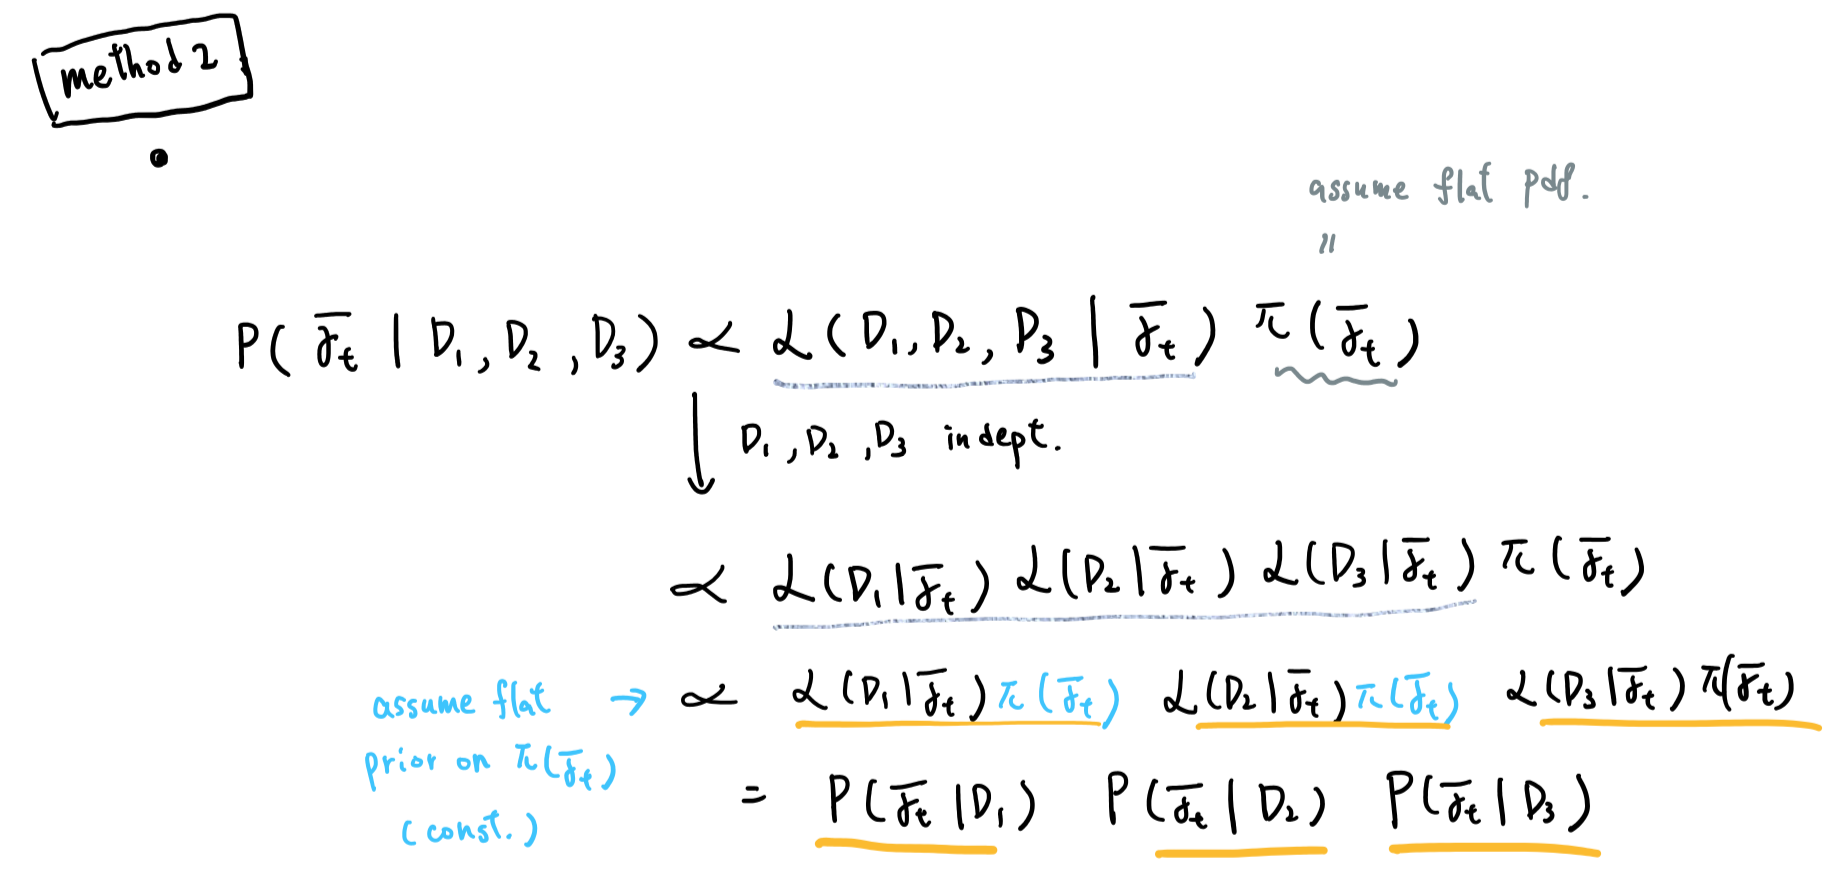 method 2
•
assume flat pdf.
"
P( γ̄_t | D₁, D₂, D₃) ∝ ℒ(D₁, D₂, D₃ | γ̄_t) π(γ̄_t)
↓ D₁, D₂, D₃ indept.
∝ ℒ(D₁|γ̄_t) ℒ(D₂|γ̄_t) ℒ(D₃|γ̄_t) π(γ̄_t)
assume flat → ∝ ℒ(D₁|γ̄_t) π(γ̄_t) ℒ(D₂|γ̄_t) π(γ̄_t) ℒ(D₃|γ̄_t) π(γ̄_t)
prior on π(γ̄_t)
(const.)
= P(γ̄_t|D₁) P(γ̄_t|D₂) P(γ̄_t|D₃)